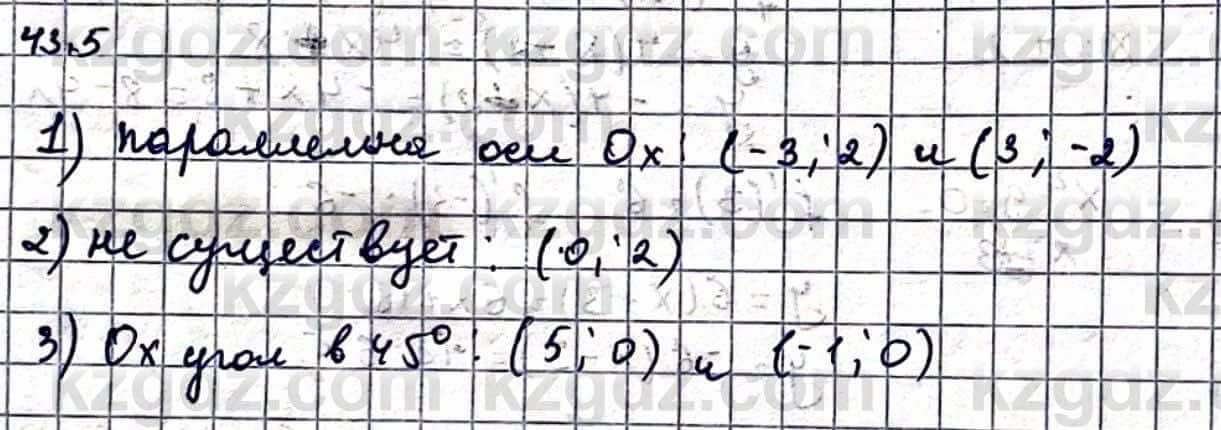 43.5
1) параллельна оси Ox: (-3; 2) и (3; -2)
2) не существует: (0; 2)
3) Ox угол в 45°: (5; 0) и (-1; 0)
kzgdz.com